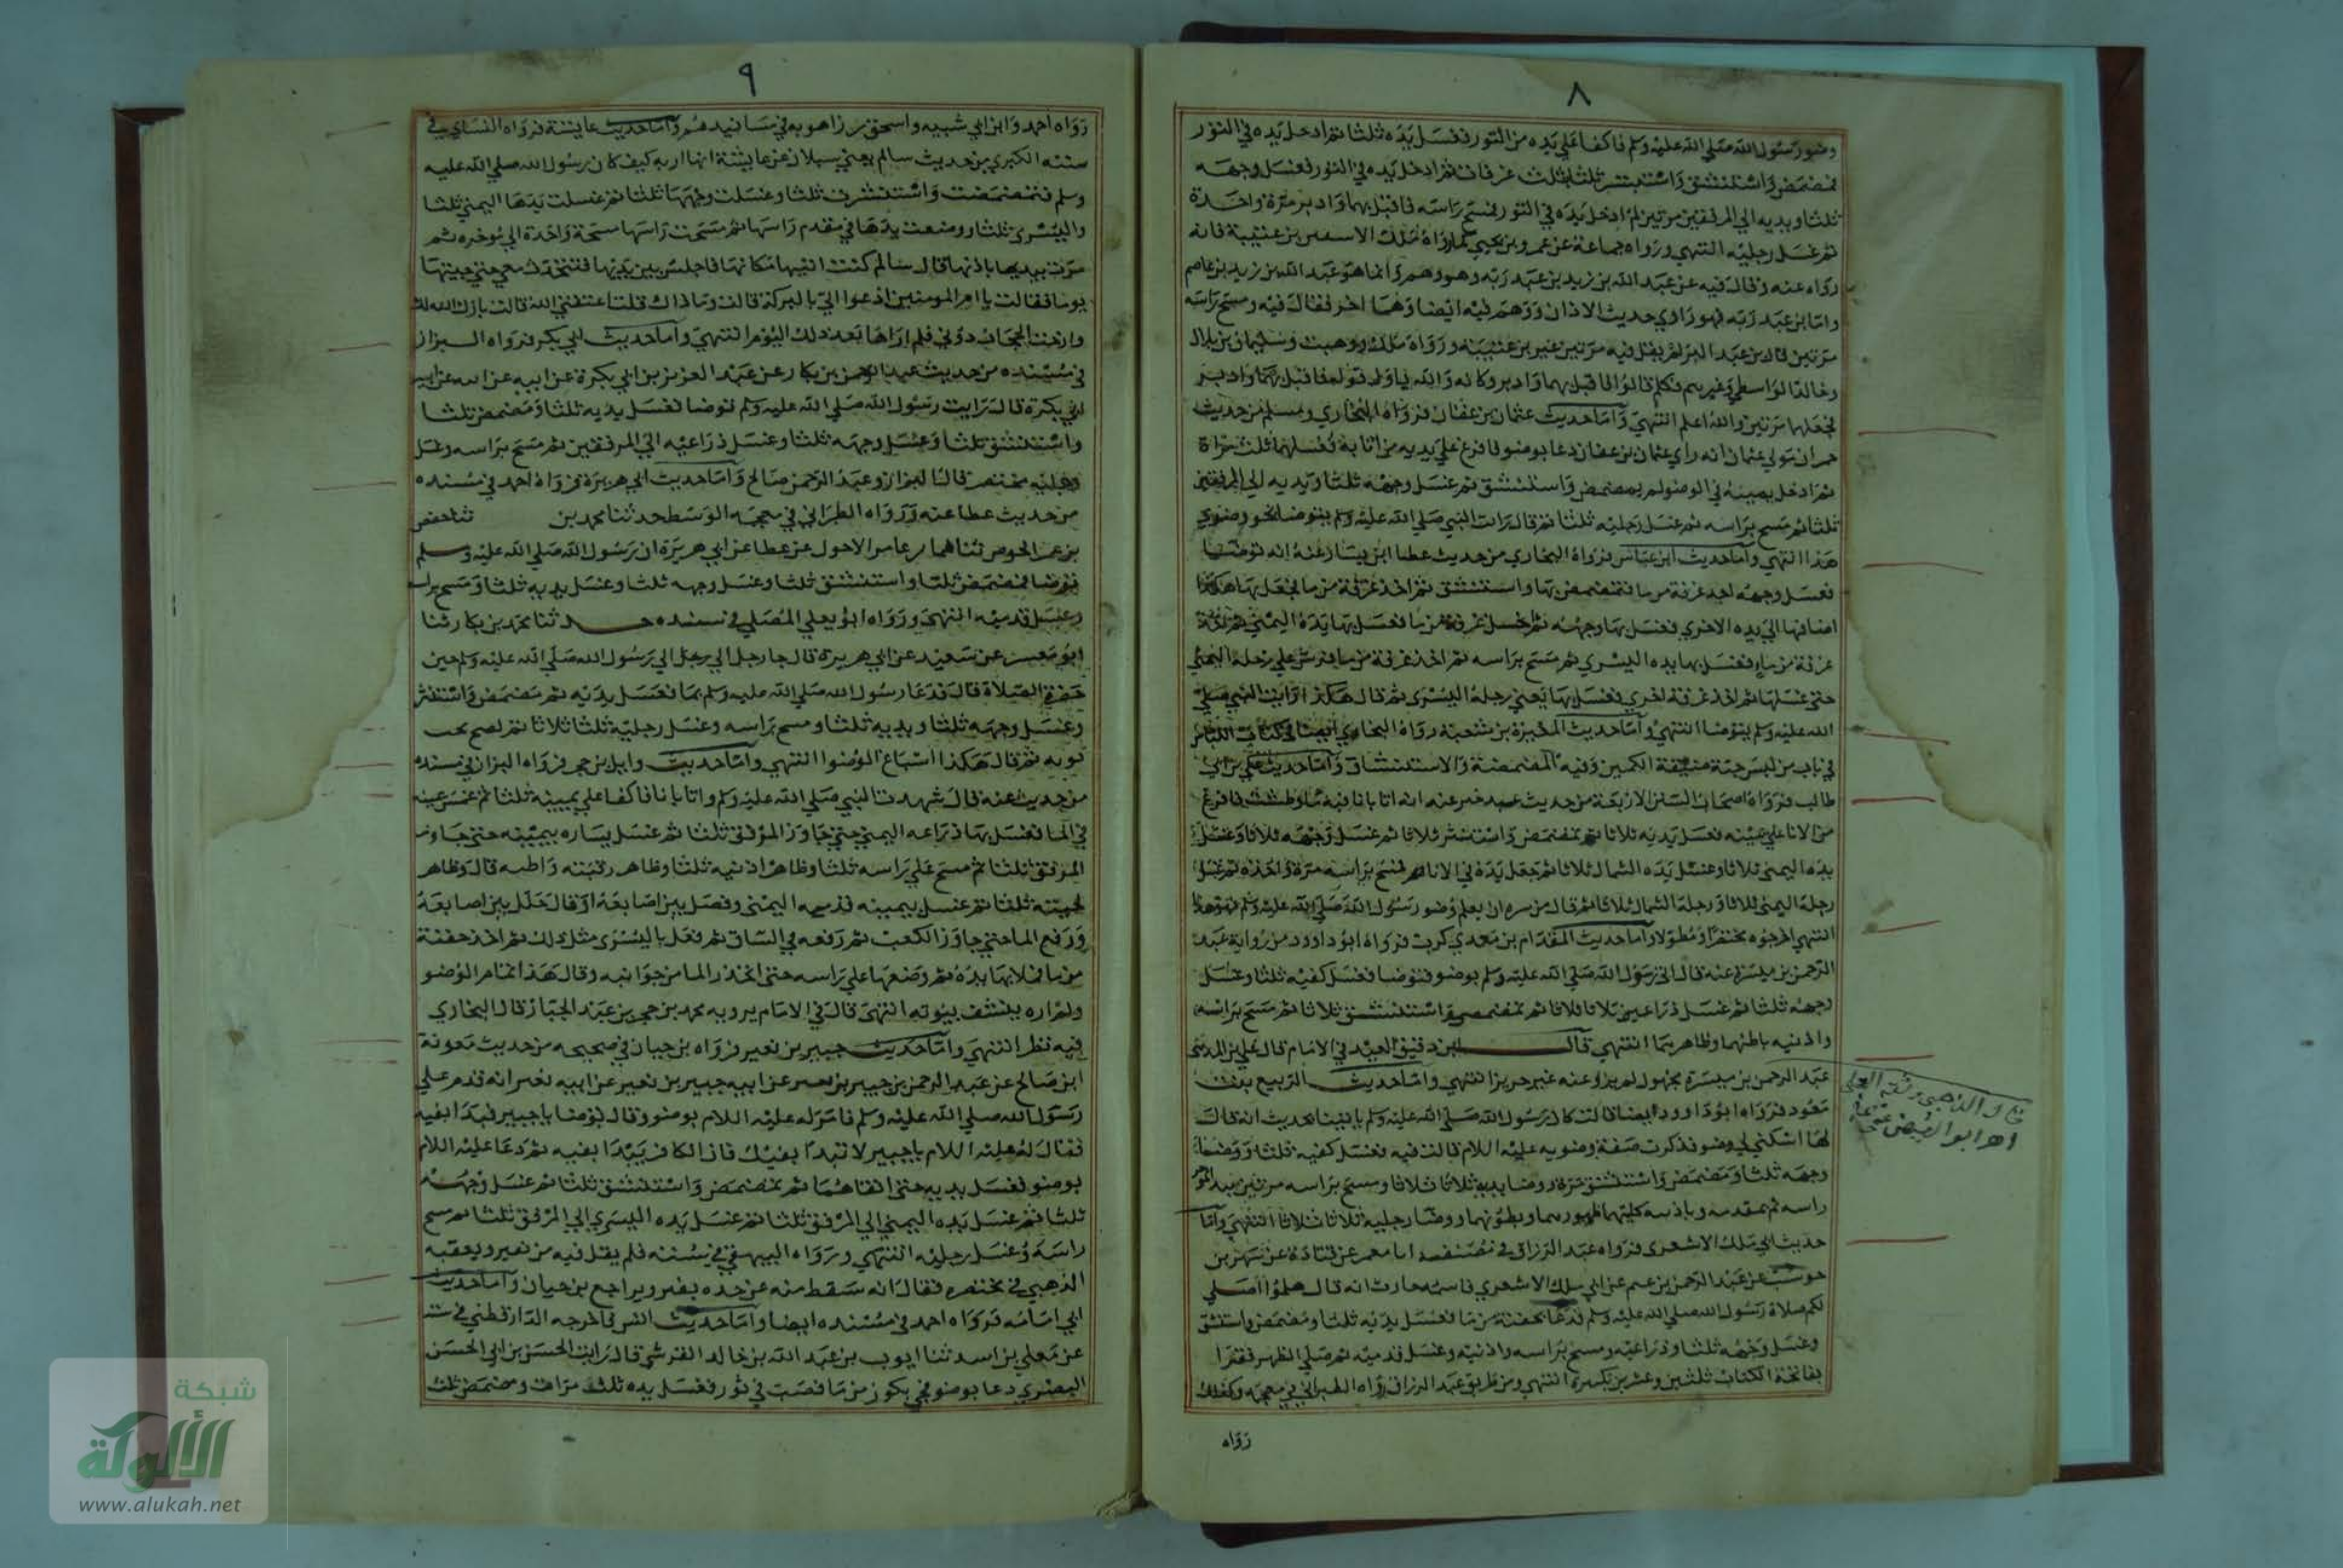 ٨
وضو رسول الله صلي الله عليه وسلم فاكفا علي يده من التور فغسل يده ثلثا ثم ادخل يده في التور
فمضمض واستنشق واستنثر ثلثا بثلث غرفات ثم ادخل يده في التور فغسل وجهه
ثلثا ويديه الي المرفقين مرتين ثم ادخل يده في التور فمسح راسه فاقبل بهما وادبر مرة واحدة
ثم غسل رجليه انتهي ورواه جماعة عن عمرو بن يحيي كما رواه ملك الا سفين بن عيينة فانه
رواه عنه وقال فيه عن عبد الله بن زيد بن عبد ربه وهو وهم وانما هو عبد الله بن زيد بن عاصم
واما ابن عبد ربه فهو راوي حديث الاذان ووهم فيه ايضا وهما اخر فقال فيه ومسح راسه
مرتين قال بن عبد البر لم يقل فيه مرتين غير بن عيينة ورواه ملك ووهيب وسليمان بن بلال
وخالد الواسطي وغيرهم فكلهم قالوا فاقبل بهما وادبر وكانه والله تاول قوله فاقبل بهما وادبر
فجعلها مرتين والله اعلم انتهي واما حديث عثمان بن عفان فرواه البخاري ومسلم من حديث
حمران مولي عثمان انه راي عثمان بن عفان دعا بوضو فافرغ علي يديه من انائه فغسلهما ثلث مرات
ثم ادخل يمينه في الوضو ثم تمضمض واستنشق ثم غسل وجهه ثلثا ويديه الي المرفقين
ثلثا ثم مسح براسه ثم غسل رجليه ثلثا ثم قال رايت النبي صلي الله عليه وسلم يتوضا نحو وضوي
هذا انتهي واما حديث ابن عباس فرواه البخاري من حديث عطا ابن يسار عنه انه توضا
فغسل وجهه اخذ غرفة من ما فتمضمض بها واستنشق ثم اخذ غرفة من ما فجعل بها هكذا
اضافها الي يده الاخري فغسل بها وجهه ثم اخذ غرفة من ما فغسل بها يده اليمني ثم اخذ
غرفة من ما فغسل بها يده اليسري ثم مسح براسه ثم اخذ غرفة من ما فرش علي رجله اليمني
حتي غسلها ثم اخذ غرفة اخري فغسل بها يعني رجله اليسري ثم قال هكذا رايت النبي صلي
الله عليه وسلم يتوضا انتهي واما حديث المغيرة بن شعبة رواه البخاري ايضا في كتاب اللباس
في باب من لبس جبة ضيقة الكمين وفيه المضمضة والاستنشاق واما حديث علي بن ابي
طالب فرواه اصحاب السنن الاربعة من حديث عبد خير عنه انه اتا بانا فيه ما وطشت فافرغ
من الانا علي يمينه فغسل يديه ثلاثا ثم تمضمض واستنثر ثلاثا ثم غسل وجهه ثلاثا وغسل
يده اليمني ثلاثا وغسل يده الشمال ثلاثا ثم جعل يده في الانا فمسح براسه مرة واحدة ثم غسل
رجله اليمني ثلاثا ورجله الشمال ثلاثا ثم قال من سره ان يعلم وضو رسول الله صلي الله عليه وسلم فهو هذا
انتهي اخرجوه مختصرا ومطولا واما حديث المقدام بن معدي كرب فرواه ابو داوود من رواية عبد
الرحمن بن ميسرة عنه قال اتي رسول الله صلي الله عليه وسلم بوضو فتوضا فغسل كفيه ثلثا وغسل
وجهه ثلثا ثم غسل ذراعيه ثلاثا ثلاثا ثم تمضمض واستنشق ثلاثا ثم مسح براسه
واذنيه باطنهما وظاهرهما انتهي قال ابن دقيق العيد في الامام قال علي بن المديني
عبد الرحمن بن ميسرة مجهول لم يرو عنه غير حريز انتهي واما حديث الربيع بنت
معوذ فرواه ابو داوود ايضا قالت كان رسول الله صلي الله عليه وسلم ياتينا فحديث انه قال
لها اسكبي لي وضو فذكرت صفة وضويه عليه السلام قالت فيه فغسل كفيه ثلثا ووضا
وجهه ثلثا ومضمض واستنشق مرة ووضا يديه ثلاثا ثلاثا ومسح براسه مرتين يبدا بموخر
راسه ثم بمقدمه وباذنيه كلتيهما ظهورهما وبطونهما ووضا رجليه ثلاثا ثلاثا انتهي واما
حديث ابي ملك الاشعري فرواه عبد الرزاق في مصنفه انا معمر عن قتادة عن شهر بن
حوشب عن عبد الرحمن بن غنم عن ابي ملك الاشعري قاسمه حارث انه قال هلموا اصلي
لكم صلاة رسول الله صلي الله عليه وسلم فدعا بجفنة من ما فغسل يديه ثلثا ومضمض واستنشق
وغسل وجهه ثلثا وذراعيه ومسح براسه واذنيه وغسل قدميه ثم صلي الظهر فقرا
بفاتحة الكتاب ثنتين وعشرين تكبيرة انتهي ومن طريق عبد الرزاق رواه الطبراني في معجمه وكذلك
رواه
قال الذهبي وثقه العجلي
اهـ ابو الفيض عفي عنه
٩
رواه احمد وابن ابي شيبه واسحق بن راهويه في مسانيدهم واما حديث عايشة فرواه النساي في
سننه الكبري من حديث سالم يعني سبلان عن عايشة انها ارته كيف كان رسول الله صلي الله عليه
وسلم فتمضمضت واستنشرت ثلثا وغسلت وجهها ثلثا ثم غسلت يدها اليمني ثلثا
واليسري ثلثا ووضعت يدها في مقدم راسها ثم مسحت راسها مسحة واحدة الي موخره ثم
مرت بيديها باذنها قال سالم كنت اتيها مكاتبا فاجلس بين يديها فتتحدث معي حتي جيتها
يوما فقالت يا ام المومنين ادعوا الي بالبركة قالت وما ذاك قلت اعتقني الله قالت بارك الله لك
وارخت الحجاب دوني فلم ارها بعد ذلك اليوم انتهي واما حديث ابي بكر فرواه البزار
في مسنده من حديث عبد الرحمن بن بكار عن عبد العزيز بن ابي بكرة عن ابيه
ابي بكرة قال رايت رسول الله صلي الله عليه وسلم توضا فغسل يديه ثلثا ومضمض ثلثا
واستنشق ثلثا وغسل وجهه ثلثا وغسل ذراعيه الي المرفقين ثم مسح براسه وغسل
رجليه مختصر قال البزار وعبد الرحمن صالح واما حديث ابي هريرة فرواه احمد في مسنده
من حديث عطا عنه ورواه الطبراني في معجمه الوسط حدثنا محمد بن ثنا حفص
بن عمر الحوضي ثنا همام عن عامر الاحول عن عطا عن ابي هريرة ان رسول الله صلي الله عليه وسلم
توضا فمضمض ثلثا واستنشق ثلثا وغسل وجهه ثلثا وغسل يديه ثلثا ومسح براسه
وغسل قدميه انتهي ورواه ابو يعلي الموصلي في مسنده حدثنا محمد بن بكار ثنا
ابو معشر عن سعيد عن ابي هريرة قال جا رجل الي رسول الله صلي الله عليه وسلم حين
حضرة الصلاة قال فدعا رسول الله صلي الله عليه وسلم بما فغسل يديه ثم مضمض واستنثر
وغسل وجهه ثلثا ويديه ثلثا ومسح براسه وغسل رجليه ثلثا ثلاثا ثم نضح تحت
ثوبه ثم قال هكذا اسباغ الوضوا انتهي واما حديث وايل بن حجر فرواه البزار في مسنده
من حديث عنه قال شهدت النبي صلي الله عليه وسلم واتا بانا فاكفا علي يمينه ثلثا ثم غمس يمينه
في الما فغسل بها ذراعه اليمني حتي جاوز المرفق ثلثا ثم غسل يساره بيمينه حتي جاوز
المرفق ثلثا ثم مسح علي راسه ثلثا وظاهر اذنيه ثلثا وظاهر رقبته واظنه قال وظاهر
لحيته ثلثا ثم غسل بيمينه قدمه اليمني وفصل بين اصابعه او قال خلل بين اصابعه
ورفع الما حتي جاوز الكعب ثم رفعه في الساق ثم فعل باليسري مثل ذلك ثم اخذ حفنة
من ما فملا بها يده ثم وضعها علي راسه حتي انحدر الما من جوانبه وقال هذا تمام الوضو
ولم اره ينشف بثوبه انتهي قال في الامام يرويه محمد بن حجر بن عبد الجبار قال البخاري
فيه نظر انتهي واما حديث جبير بن نفير فرواه بن حبان في صحيحه من حديث معوية
ابن صالح عن عبد الرحمن بن جبير بن نفير عن ابيه جبير بن نفير عن ابيه نفير انه قدم علي
رسول الله صلي الله عليه وسلم فامر له عليه السلام بوضو وقال توضا يا جبير فبدا بفيه
فقال له عليه السلام يا جبير لا تبدا بفيك فان الكافر يبدا بفيه ثم دعا عليه السلام
بوضو فغسل يديه حتي انقاهما ثم تمضمض واستنشق ثلثا ثم غسل وجهه
ثلثا ثم غسل يده اليمني الي المرفق ثلثا ثم غسل يده اليسري الي المرفق ثلثا ثم مسح
راسه وغسل رجليه انتهي ورواه البيهقي في سننه فلم يقل فيه من نفير وتعقبه
الذهبي في مختصره فقال انه سقط منه عن جده نفير ويراجع بن حبان واما حديث
ابي امامه فرواه احمد في مسنده ايضا واما حديث انس فاخرجه الدارقطني في سننه
عن معلي بن اسد ثنا ايوب بن عبد الله بن خالد القرشي قال رايت الحسن بن ابي الحسن
البصري دعا بوضو فجي بكوز من ما فصب في تور فغسل يده ثلث مرات ومضمض ثلث
شبكة
الألوكة
www.alukah.net